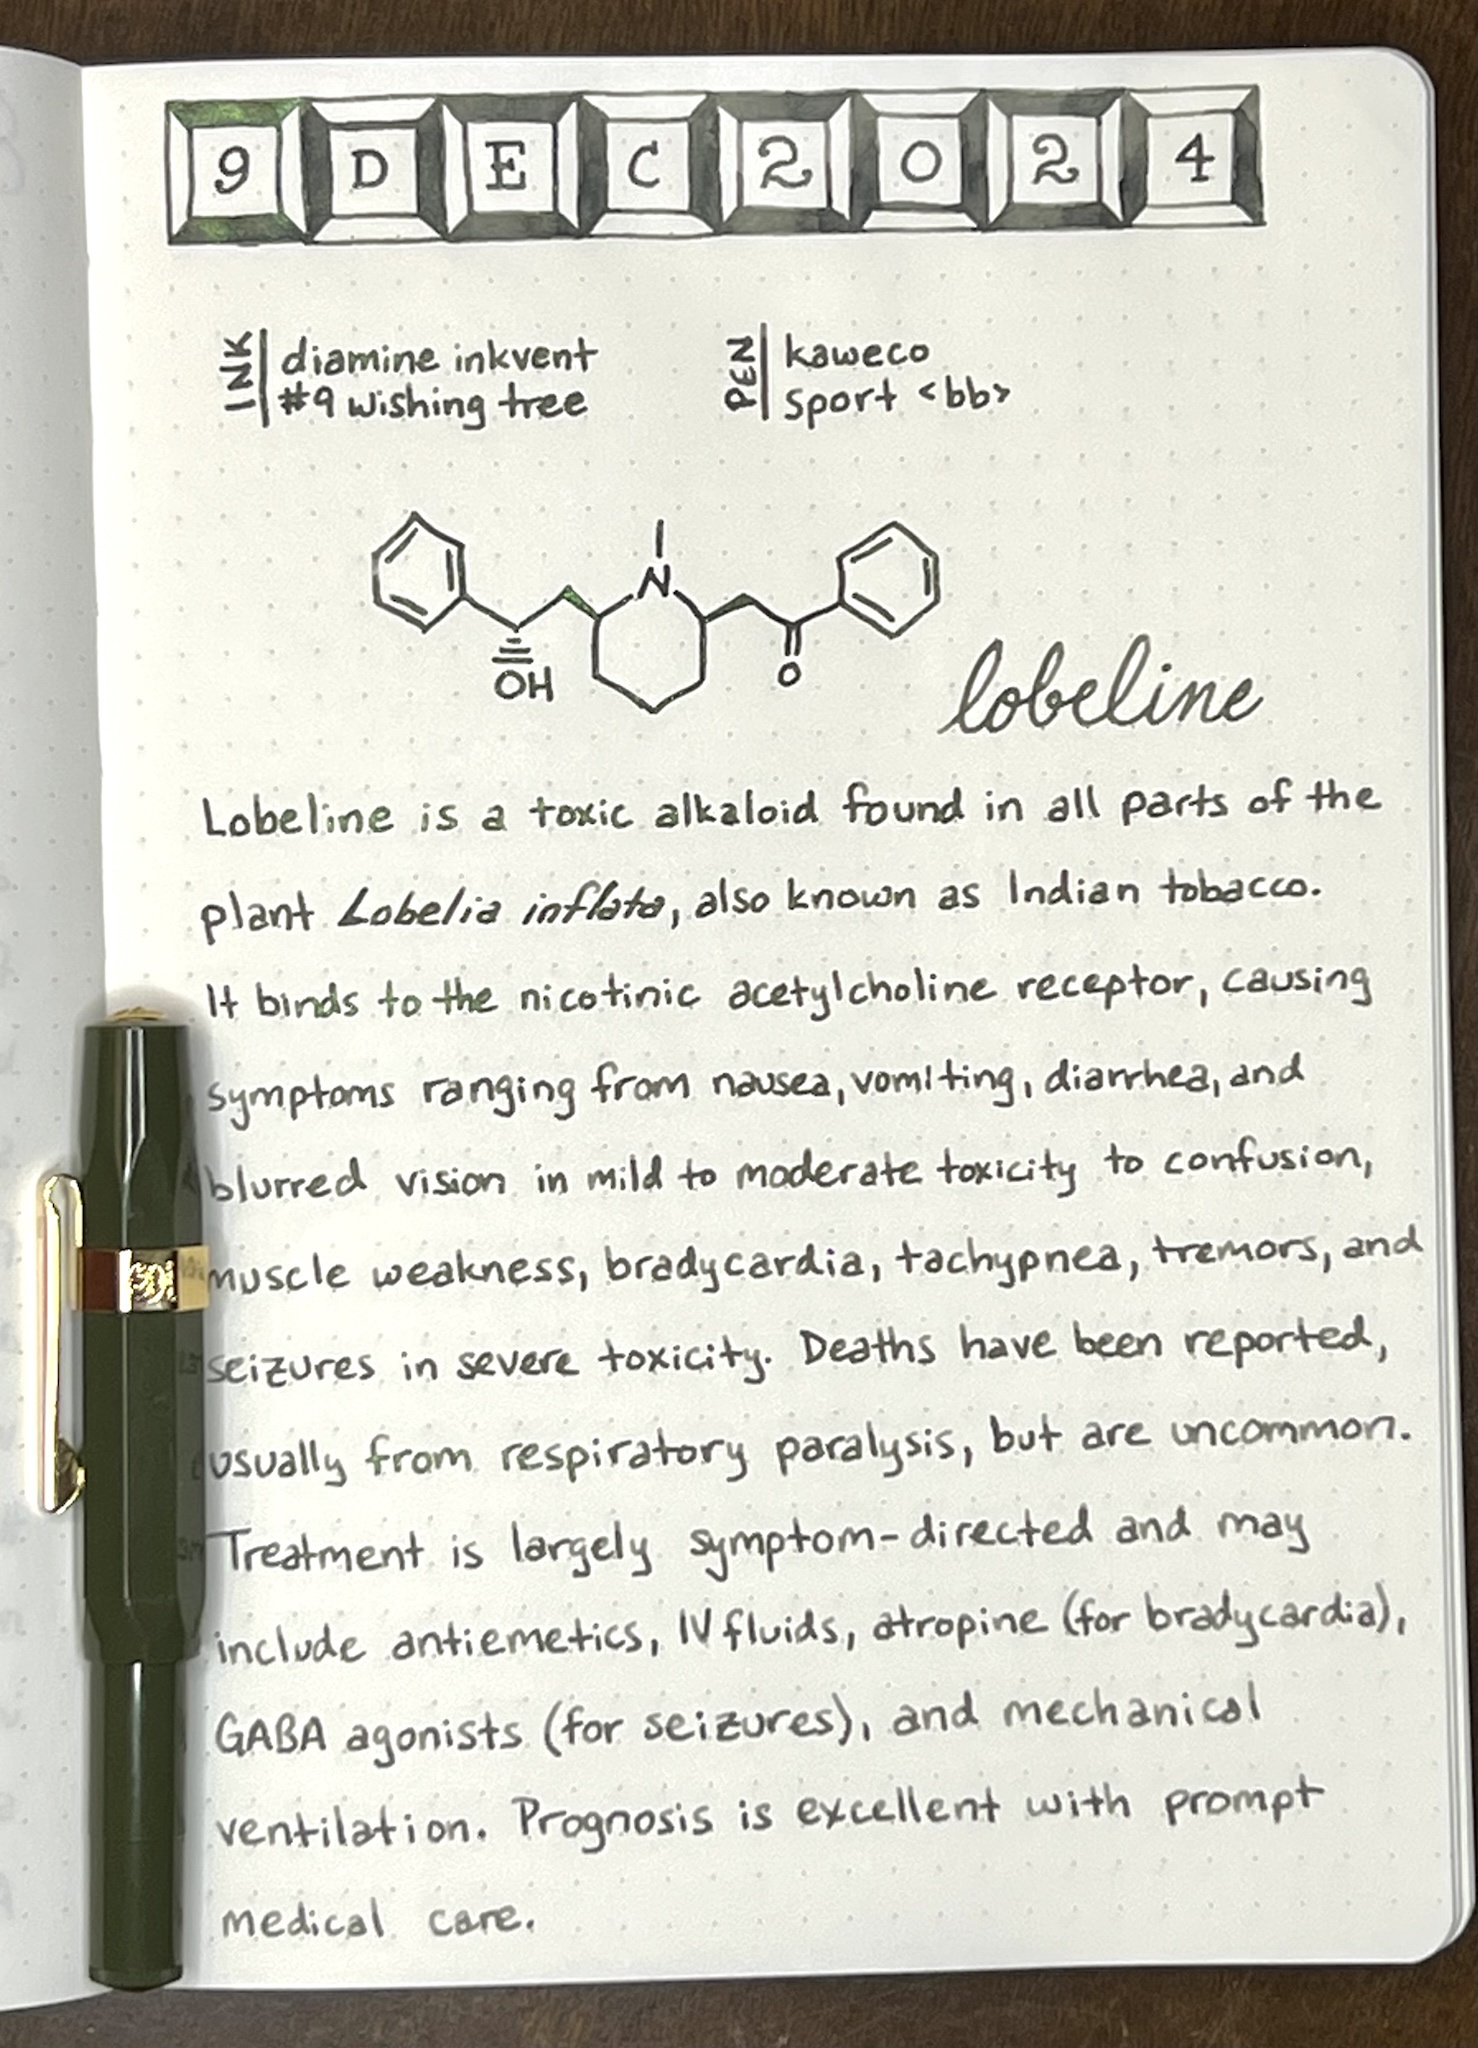 9 DEC 2024
INK
diamine inkvent
#9 wishing tree
PEN
kaweco
sport <bb>
N
OH
O
lobeline
Lobeline is a toxic alkaloid found in all parts of the
plant Lobelia inflata, also known as Indian tobacco.
It binds to the nicotinic acetylcholine receptor, causing
symptoms ranging from nausea, vomiting, diarrhea, and
blurred vision in mild to moderate toxicity to confusion,
muscle weakness, bradycardia, tachypnea, tremors, and
seizures in severe toxicity. Deaths have been reported,
usually from respiratory paralysis, but are uncommon.
Treatment is largely symptom-directed and may
include antiemetics, IV fluids, atropine (for bradycardia),
GABA agonists (for seizures), and mechanical
ventilation. Prognosis is excellent with prompt
medical care.